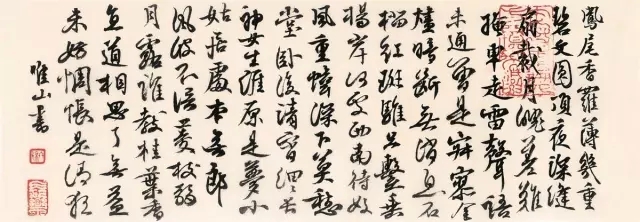 鳳尾香羅薄幾重
碧文圓頂夜深縫
扇裁月魄羞難
掩車走雷聲語
未通曾是寂寥金
燼暗斷無消息石
榴紅斑騅只繫垂
楊岸何處西南待好
風重幃深下莫愁
堂卧後清宵細々長
神女生涯原是夢小
姑居處本無郎
風波不信菱枝弱
月露誰教桂葉香
直道相思了無益
未妨惆悵是清狂
唯山書